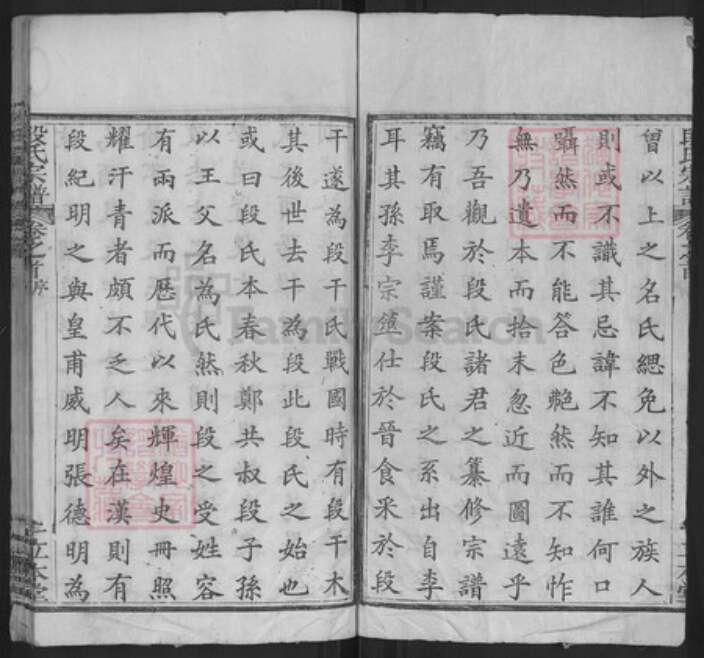 曾以上之名氏緦免以外之族人
則或不識其忌諱不知其誰何口
囁然而不能答色赩然而不知怍
無乃遺本而拾末忽近而圖遠乎
乃吾觀於段氏諸君之纂修宗譜
竊有取焉謹案段氏之系出自李
耳其孫李宗筮仕於晉食采於段
干遂為段干氏戰國時有段干木
其後世去干為段此段氏之始也
或曰段氏本春秋鄭共叔段子孫
以王父名為氏然則段之受姓容
有兩派而歷代以來輝煌史冊照
耀汗青者頗不乏人矣在漢則有
段紀明之與皇甫威明張德明為
段氏宗譜
卷之首
序
立本堂
FamilySearch